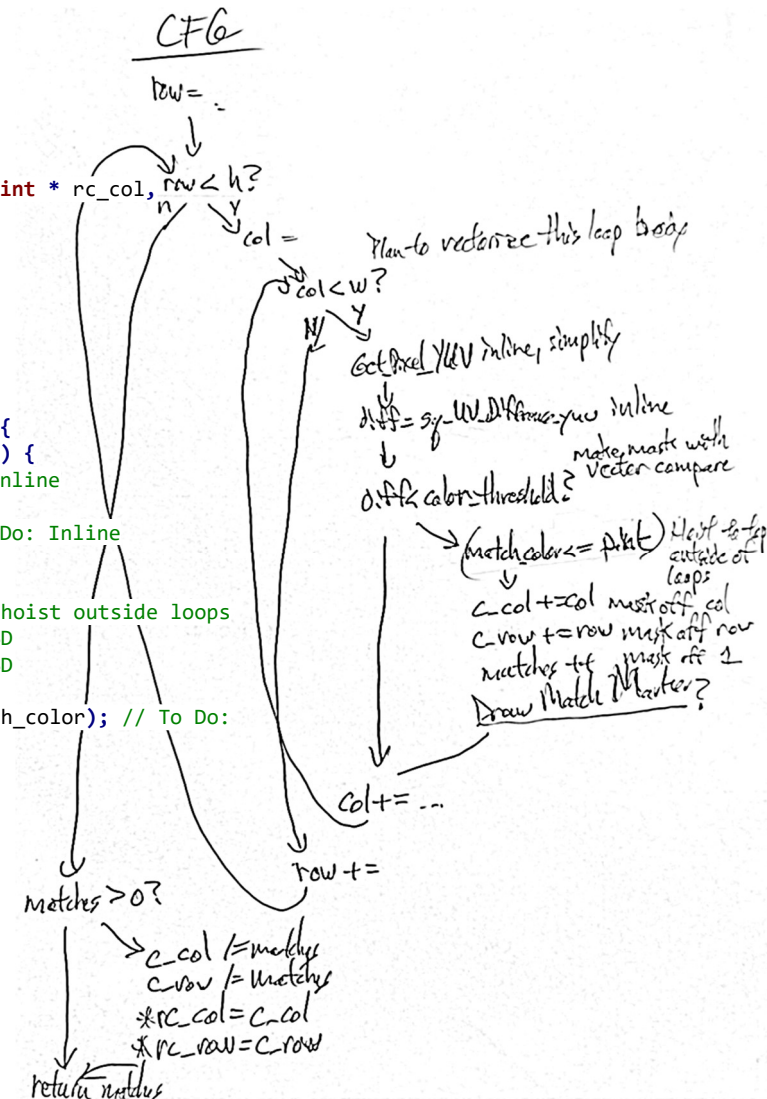 CFG
row= ..
int * rc_col,
row < h?
n Y
col =
Plan to vectorize this loop body
col < w?
N Y
GetPixel_YUV inline, simplify
{
diff = sq_UV_Difference_yuv inline
) {
make mask with
nline
vector compare
diff < color_threshold?
Do: Inline
(match_color <= pint) Hoist to top
outside of
loops
c_col += col mask off col
hoist outside loops
c_row += row mask off row
D
matches ++ mask off 1
D
Draw Match Marker?
h_color); // To Do:
col += ...
row +=
matches > 0?
c_col /= matches
c_row /= matches
*rc_col = c_col
*rc_row = c_row
return matches